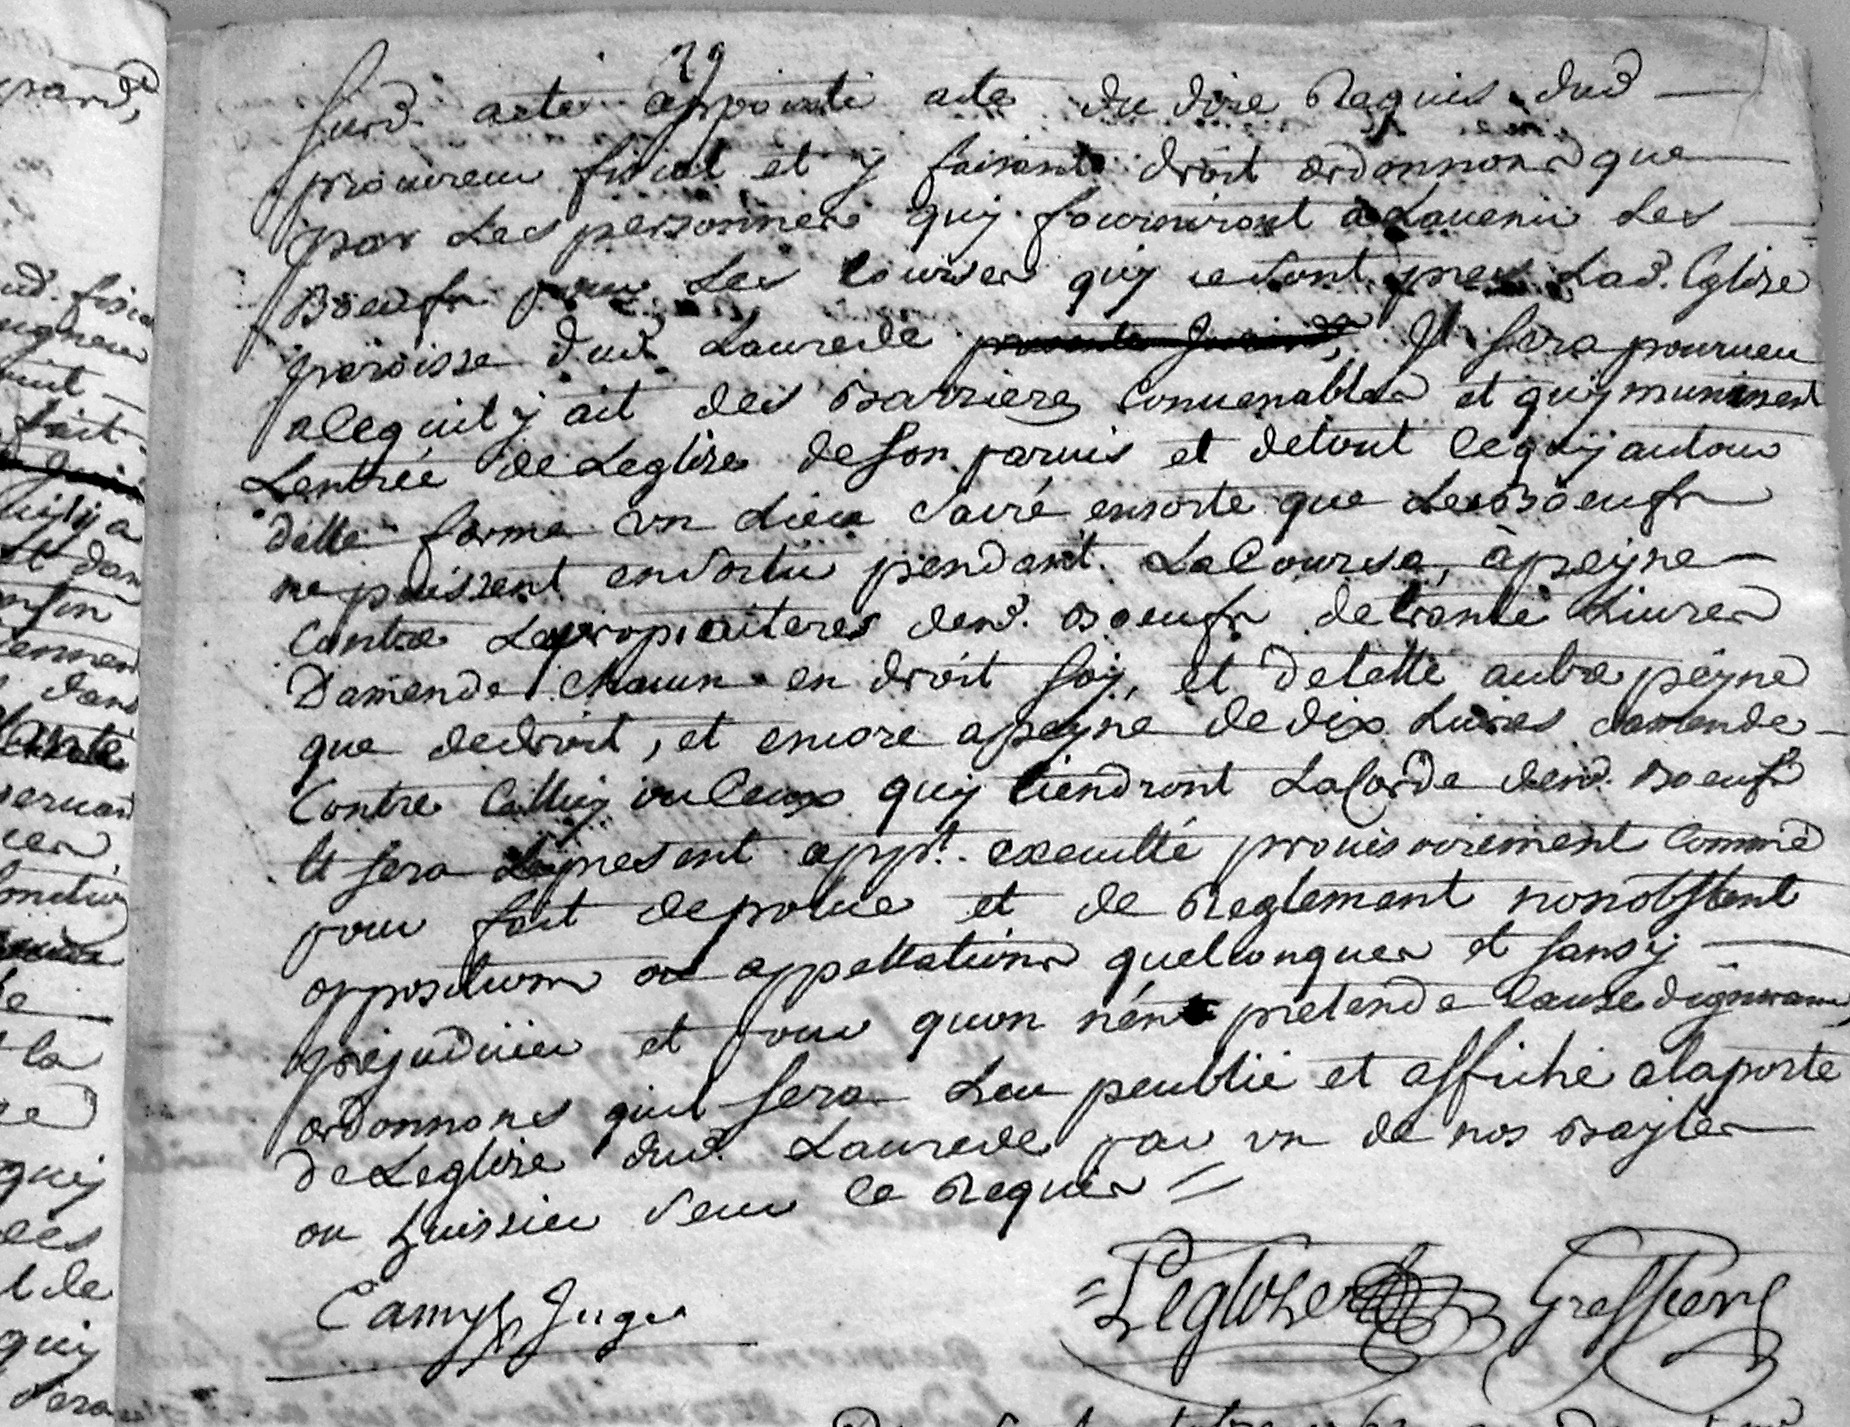 29
surd. acte appointé acte du dire Requis dud
procureur fiscal et y faisant droit ordonnons que
par Les personnes quy fourniront a Lauenir Les
Boeufs pour Les Courses quy se font pres Lad. Eglise
paroisse dud. Laurede Il sera pourueu
a ce quil y ait des Barrieres Conuenables et quy munissent
Lentrée de Leglise de son paruis et de tout ce quy autour
delle forme vn Lieu Sacré ensorte que Les Boeufs
ne puissent en sortir pendant La Course, à peyne
Contre Les propriaiteres desd. Boeufs de trante Liures
Damende Chacun en droit soy, et de telle autre peyne
que de droit, et encore a peyne de dix Liures damende
Contre Celluy ou Ceux quy tiendront La Corde desd. Boeufs
Et sera Le present appt. executté prouisoirement Comme
pour fait de police et de Reglement nonobstent
oppositions ou appellations quelconques et sans y
prejudicier et pour quon nen pretende Cause dignorance,
ordonnons quil sera Leu peublié et affiché a la porte
de Leglise dud. Laurede par vn de nos Bayles
ou huissier Seur ce Requis
Camy Juge
Leglize Greffier